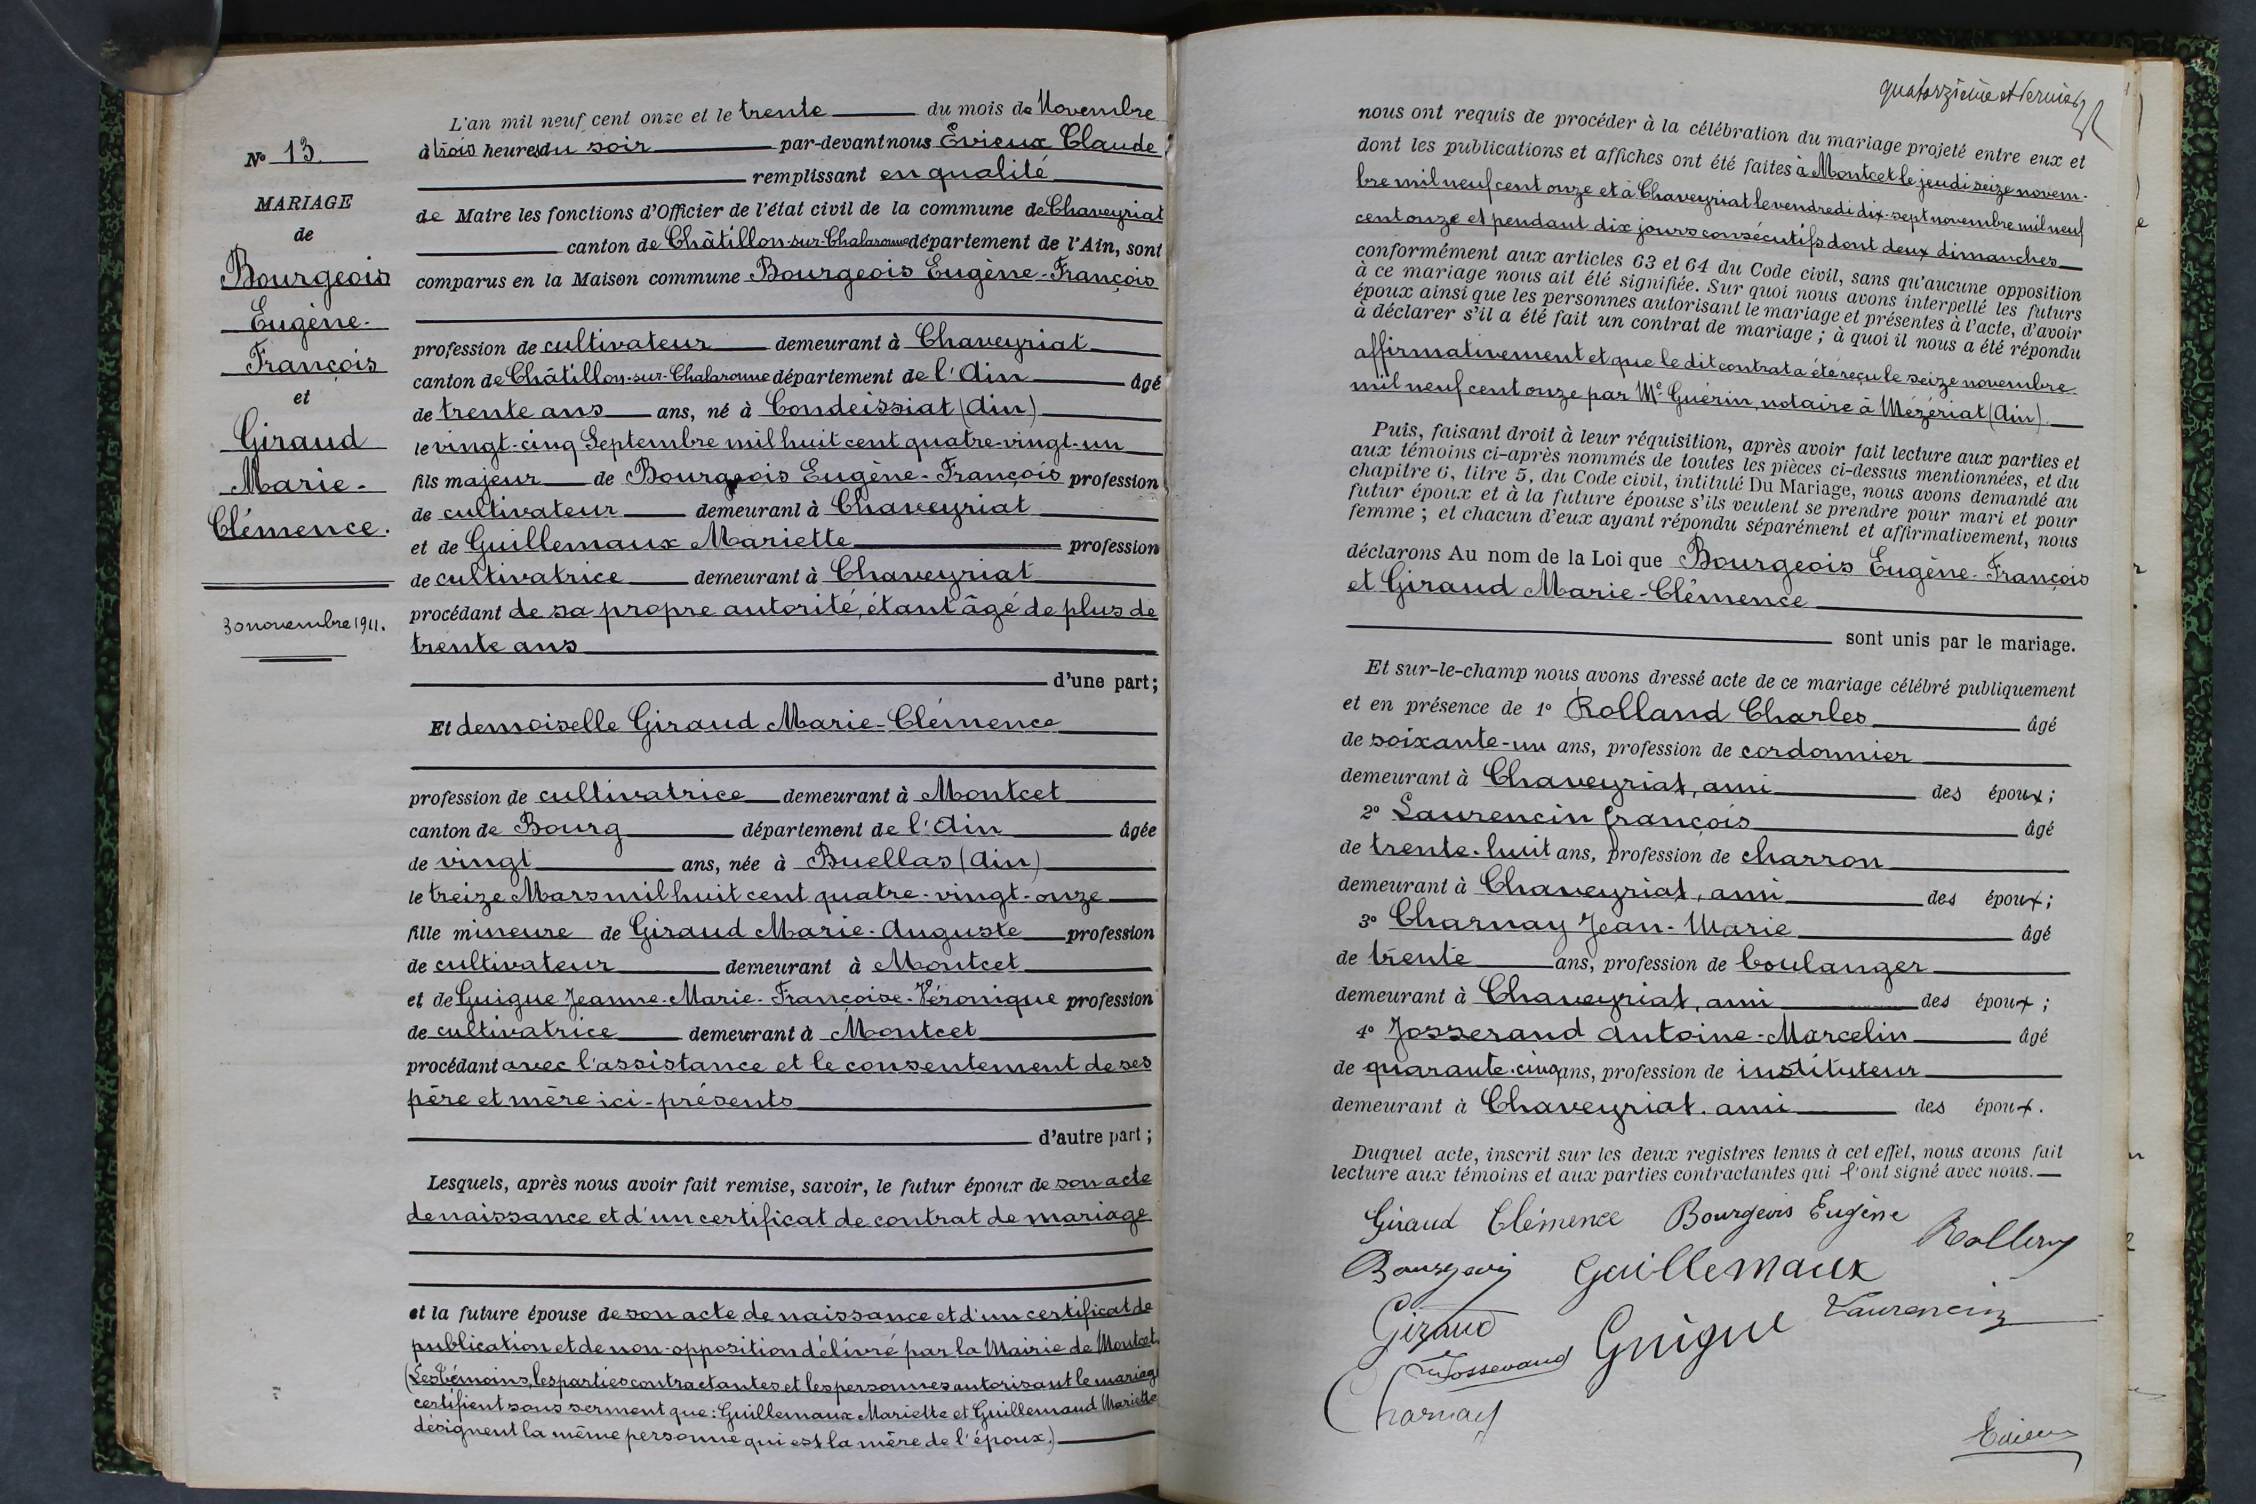 N° 13.
MARIAGE
de
Bourgeois
Eugène-
François
et
Giraud
Marie-
Clémence.
30 novembre 1911.
L'an mil neuf cent onze et le trente du mois de Novembre
à trois heures du soir par-devant nous Evieux Claude
remplissant en qualité
de Maire les fonctions d'Officier de l'état civil de la commune de Chaveyriat
canton de Châtillon-sur-Chalaronne département de l'Ain, sont
comparus en la Maison commune Bourgeois Eugène-François
profession de cultivateur demeurant à Chaveyriat
canton de Châtillon-sur-Chalaronne département de l'Ain âgé
de trente ans ans, né à Condeissiat (Ain)
le vingt-cinq Septembre mil huit cent quatre-vingt-un
fils majeur de Bourgeois Eugène-François profession
de cultivateur demeurant à Chaveyriat
et de Guillemaux Mariette profession
de cultivatrice demeurant à Chaveyriat
procédant de sa propre autorité, étant âgé de plus de
trente ans
d'une part;
Et demoiselle Giraud Marie-Clémence
profession de cultivatrice demeurant à Montcet
canton de Bourg département de l'Ain âgée
de vingt ans, née à Buellas (Ain)
le treize Mars mil huit cent quatre-vingt-onze
fille mineure de Giraud Marie-Auguste profession
de cultivateur demeurant à Montcet
et de Guigue Jeanne-Marie-Françoise-Véronique profession
de cultivatrice demeurant à Montcet
procédant avec l'assistance et le consentement de ses
père et mère ici-présents
d'autre part;
Lesquels, après nous avoir fait remise, savoir, le futur époux de son acte
de naissance et d'un certificat de contrat de mariage
et la future épouse de son acte de naissance et d'un certificat de
publication et de non-opposition délivré par la Mairie de Montcet.
(Les témoins, les parties contractantes et les personnes autorisant le mariage
certifient sous serment que: Guillemaux Mariette et Guillemaud Mariette
désignent la même personne qui est la mère de l'époux.)
quatorzième et dernier
nous ont requis de procéder à la célébration du mariage projeté entre eux et
dont les publications et affiches ont été faites à Montcet le jeudi seize novem-
bre mil neuf cent onze et à Chaveyriat le vendredi dix-sept novembre mil neuf
cent onze et pendant dix jours consécutifs dont deux dimanches
conformément aux articles 63 et 64 du Code civil, sans qu'aucune opposition
à ce mariage nous ait été signifiée. Sur quoi nous avons interpellé les futurs
époux ainsi que les personnes autorisant le mariage et présentes à l'acte, d'avoir
à déclarer s'il a été fait un contrat de mariage; à quoi il nous a été répondu
affirmativement et que le dit contrat a été reçu le seize novembre
mil neuf cent onze par Me Guérin, notaire à Mézériat (Ain).
Puis, faisant droit à leur réquisition, après avoir fait lecture aux parties et
aux témoins ci-après nommés de toutes les pièces ci-dessus mentionnées, et du
chapitre 6, titre 5, du Code civil, intitulé Du Mariage, nous avons demandé au
futur époux et à la future épouse s'ils veulent se prendre pour mari et pour
femme; et chacun d'eux ayant répondu séparément et affirmativement, nous
déclarons Au nom de la Loi que Bourgeois Eugène-François
et Giraud Marie-Clémence
sont unis par le mariage.
Et sur-le-champ nous avons dressé acte de ce mariage célébré publiquement
et en présence de 1° Rolland Charles âgé
de soixante-un ans, profession de cordonnier
demeurant à Chaveyriat, ami des époux;
2° Laurencin François âgé
de trente-huit ans, profession de charron
demeurant à Chaveyriat, ami des époux;
3° Charnay Jean-Marie âgé
de trente ans, profession de boulanger
demeurant à Chaveyriat, ami des époux;
4° Josserand Antoine-Marcelin âgé
de quarante-cinq ans, profession de instituteur
demeurant à Chaveyriat, ami des époux.
Duquel acte, inscrit sur les deux registres tenus à cet effet, nous avons fait
lecture aux témoins et aux parties contractantes qui l'ont signé avec nous.
Giraud Clémence Bourgeois Eugène
Bourgeois Guillemaux
Giraud Guigue Laurencin
Josserand
Charnay
Evieux